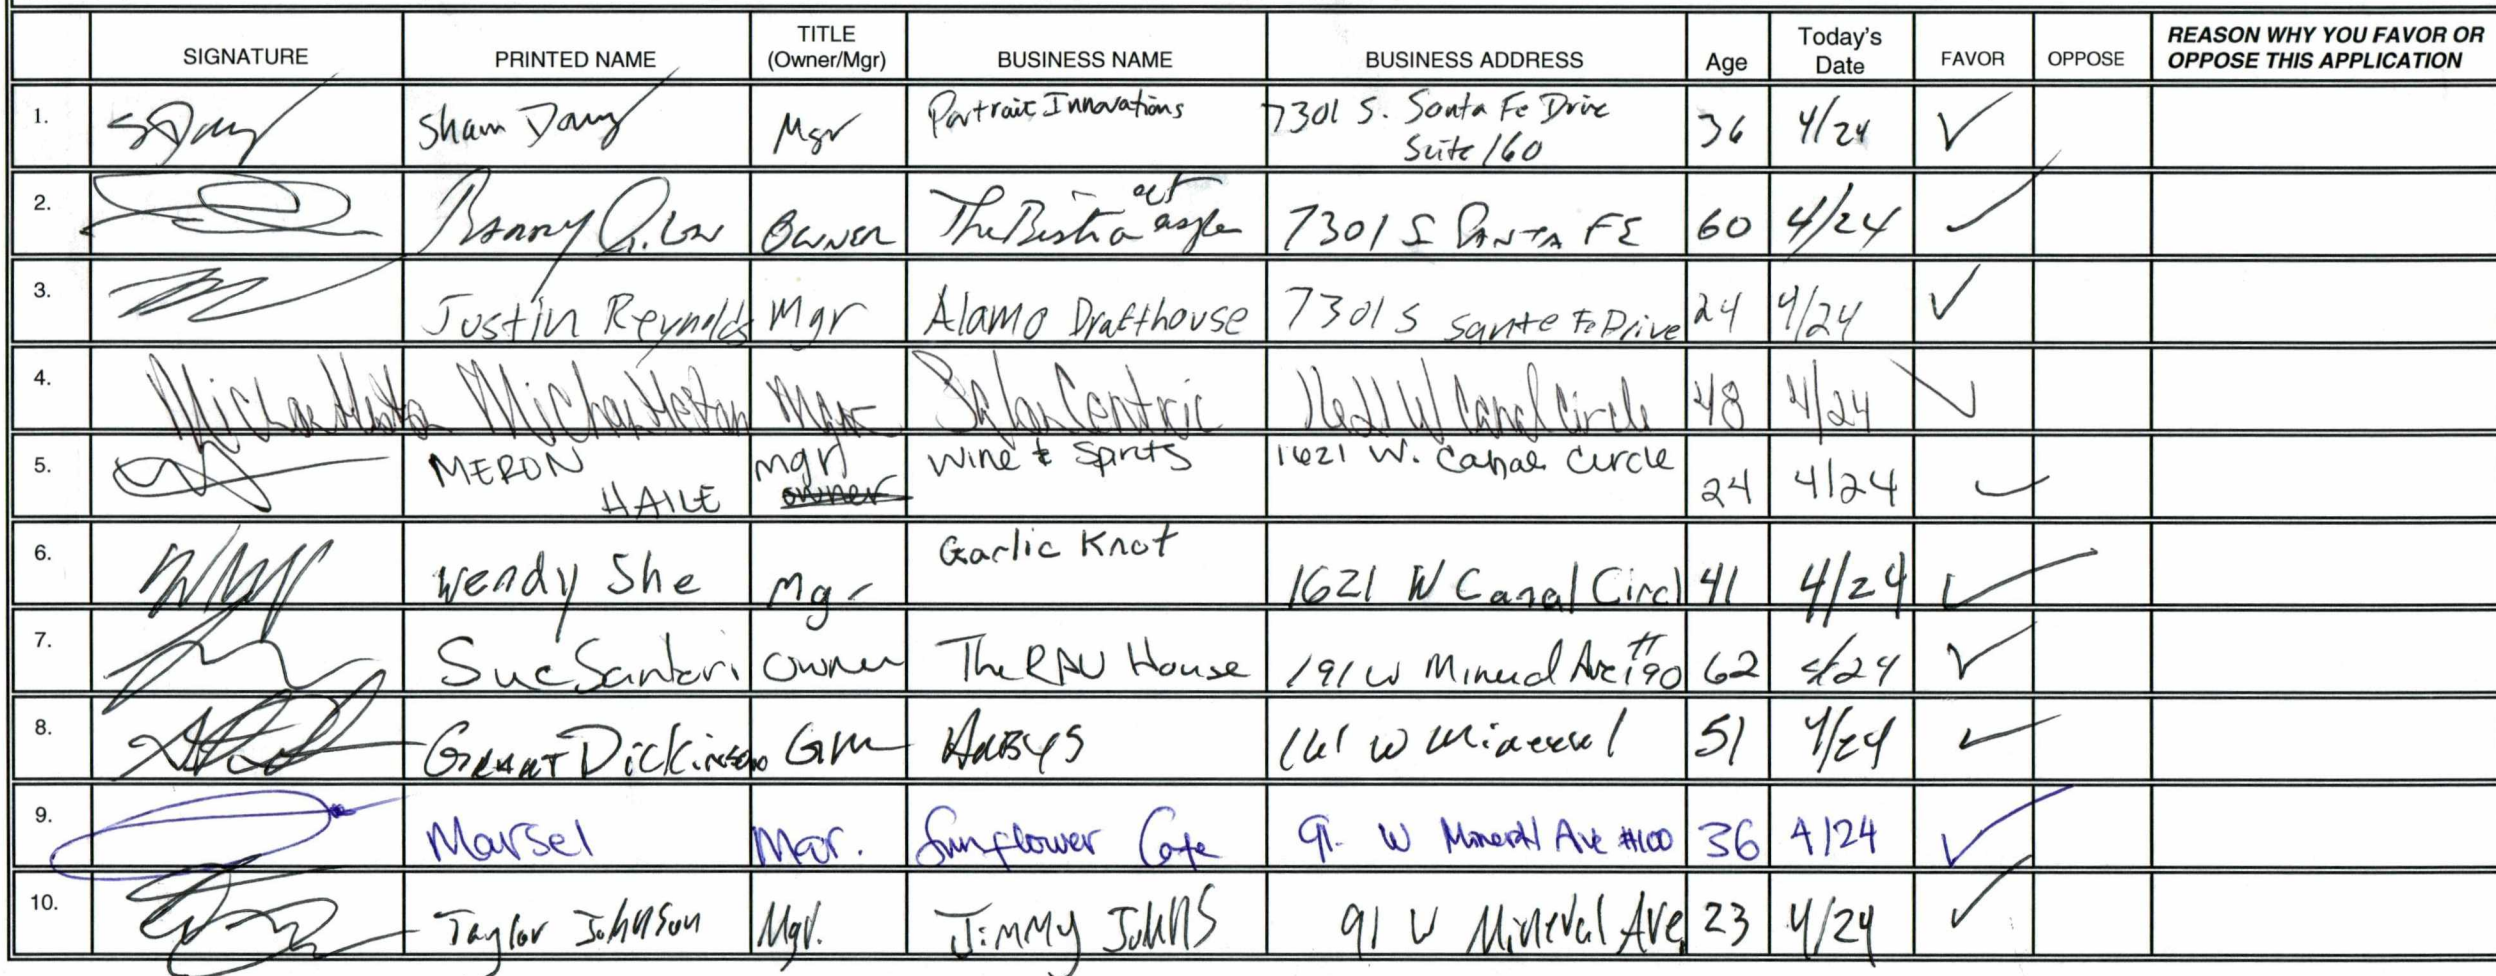 SIGNATURE PRINTED NAME TITLE (Owner/Mgr) BUSINESS NAME BUSINESS ADDRESS Age Today's Date FAVOR OPPOSE REASON WHY YOU FAVOR OR OPPOSE THIS APPLICATION
1. Mgr Portrait Innovations 7301 S. Santa Fe Drive Suite 160 36 4/24
2. Owner 7301 S Santa Fe 60 4/24
3. Justin Reynolds Mgr Alamo Drafthouse 7301 S Sante Fe Drive 24 4/24
4. W Canal Circle 48 4/24
5. MERON HAILE mgr owner Wine & Spirits 1621 W. Canal Circle 24 4/24
6. Wendy She Mgr Garlic Knot 1621 W Canal Circl 41 4/24
7. Sue Santeri owner The House 191 W Mineral Ave #190 62 4/24
8. Grant Dickinson GM ARBYS 161 W Mineral 51 4/24
9. Marsel Sunflower Cafe 91. W Mineral Ave #100 36 4/24
10. Taylor Johnson Mgr. Jimmy Johns 91 W Mineral Ave 23 4/24